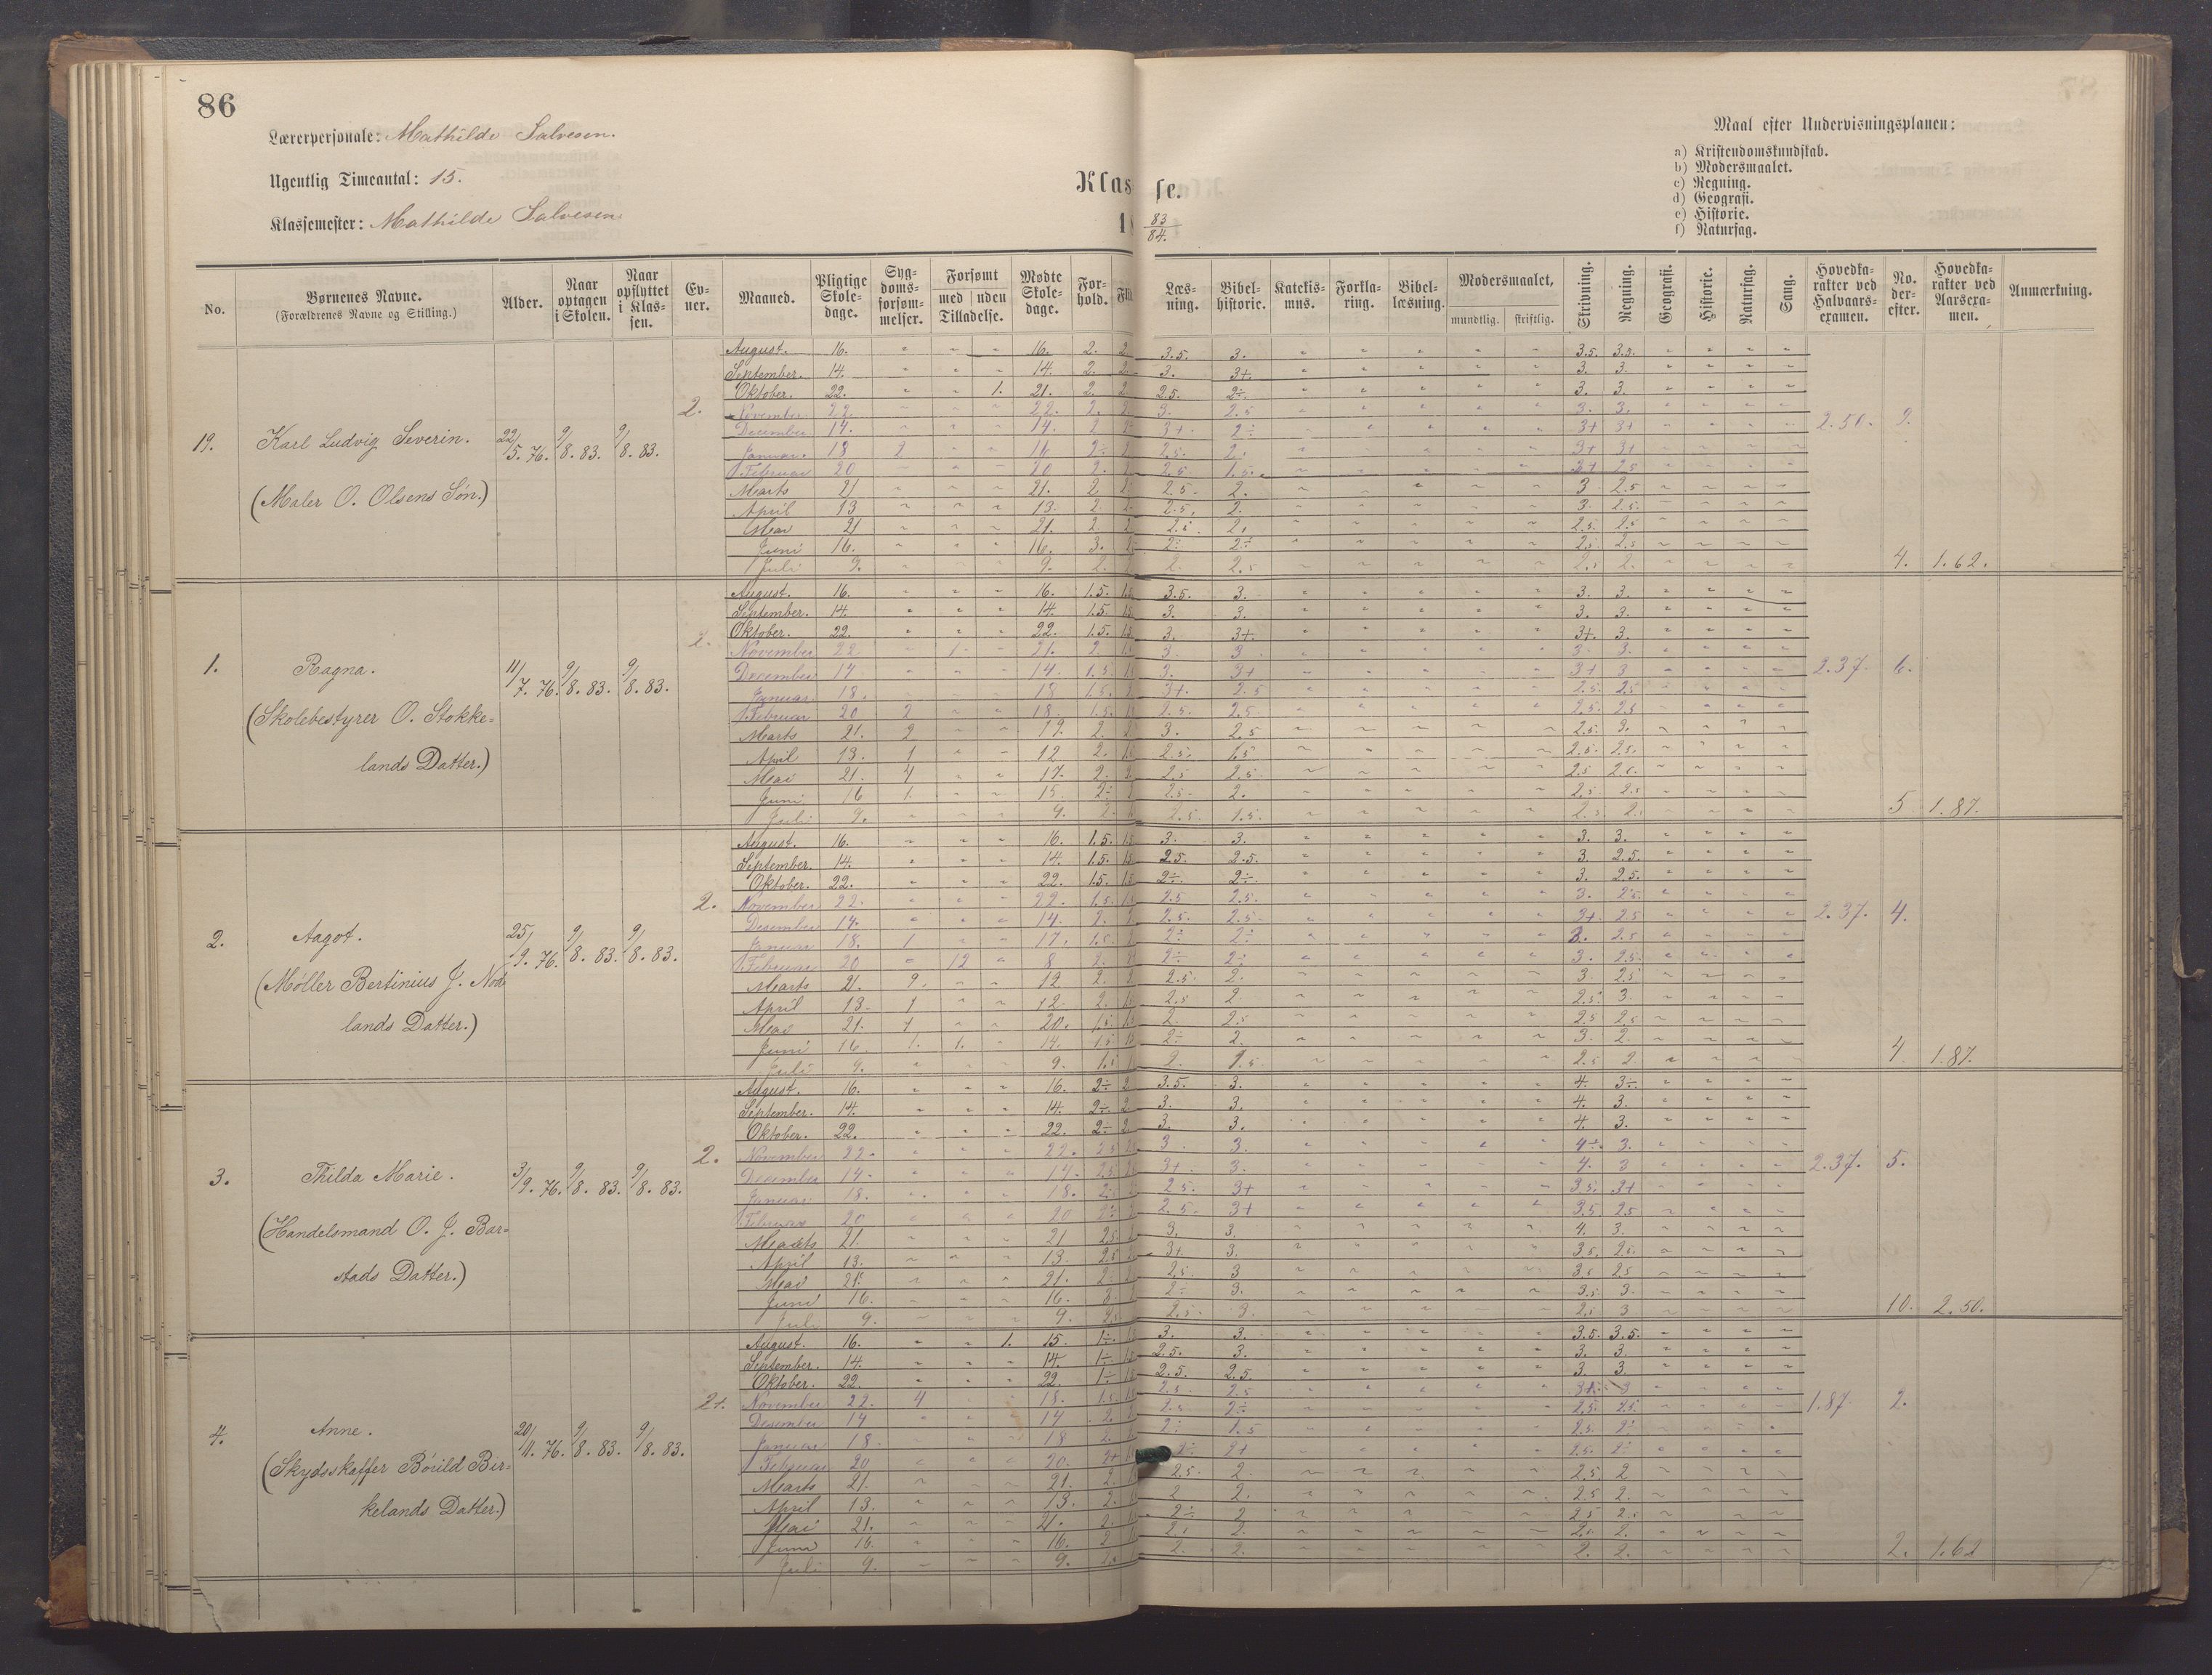 86
Lærerpersonale: Mathilde Salvesen.
Ugentlig Timeantal: 15.
Klassemester: Mathilde Salvesen
Klasse.
18 83/84.
Maal efter Undervisningsplanen:
a) Kristendomskundskab.
b) Modersmaalet.
c) Regning.
d) Geografi.
e) Historie.
f) Naturfag.
No. Børnenes Navne. (Forældrenes Navne og Stilling.) Alder. Naar optagen i Skolen. Naar opflyttet i Klassen. Evner. Maaned. Pligtige Skoledage. Sygdomsforsømmelser. Forsømt med uden Tilladelse. Mødte Skoledage. Forhold. Læsning. Bibelhistorie. Katekismus. Forklaring. Bibellæsning. Modersmaalet, mundtlig. skriftlig. Skrivning. Regning. Geografi. Historie. Naturfag. Sang. Hovedkarakter ved Halvaarsexamen. No. derefter. Hovedkarakter ved Aarsexamen. Anmærkning.
19. Karl Ludvig Severin. 22/5. 76. 9/8. 83. 9/8. 83. 2.
(Maler O. Olsens Søn.)
August. 16. 16. 2. 2 3.5. 3. 3.5. 3.5.
September. 14. 14. 2. 2. 3. 3+. 3. 3.
Oktober. 22. 1. 21. 2. 2 2.5. 2÷. 3. 3.
November 22. 22. 2. 3. 2.5 3. 3.
December 14. 14. 2 3+ 2÷ 3+ 3+
Januar. 18 2 16 2÷ 2.5. 2. 3+ 3+
Februar 20 20 2. 2.5 1.5. 3+ 2.5
Marts 21 21. 2 2.5 2. 3 2.5
April 13 13. 2 2.5. 2. 3. 2.5.
Mai 21 21. 2. 2. 2.5 2.5
Juni 16. 16. 3. 2÷ 2÷ 2.5 2.5
Juli 9. 9. 2. 2. 2.5 2.
2.50. 4. 1.62.
1. Ragna. 11/7. 76. 9/8. 83. 9/8. 83.
(Skolebestyrer O. Stokke-
lands Datter.)
August. 16. 16. 1.5. 1.5 3.5. 3. 3. 3.
September. 14. 14. 1.5. 1.5 3. 3. 3. 3.
Oktober. 22. 22. 1.5. 1.5 3. 3+. 3+. 3.
November 22 1. 21. 2. 3 3 3. 3.
December 14 14. 1.5 3. 3+ 3+ 3
Januar 18. 18 1.5. 3+. 2.5 2.5. 2.5
Februar 20 2 18. 1.5. 2.5. 2.5 2.5. 2.5
Marts 21. 2 19. 2. 3. 2.5 2.5. 3.
April 13. 1 12 2. 2.5. 1.5 2.5. 2.5.
Mai 21. 4 17. 2. 2.5 2.5 2.5
Juni 16 1. 15. 2÷ 2.5 2. 2.5 2.5
Juli 9. 9. 2. 2.5. 1.5. 2.5 2.
2.37. 6. 5 1.87.
2. Aagot. 25/9. 76. 9/8. 83. 9/8. 83. 2.
(Møller Bertinius J. Nod
lands Datter.)
August. 16. 16. 1.5. 1.5 3. 3. 3. 3.
September. 14. 14. 1.5. 1.5 2.5. 2.5. 3. 2.5.
Oktober. 22. 22. 1.5. 1.5 2÷. 2÷. 3. 2.5.
November 22. 22. 1.5. 2.5 2.5. 3. 2.5.
Desember 14. 14. 2. 2.5. 2.5 3+. 2.5
Januar 18. 1 17. 1.5. 2÷ 2÷ 3. 2.5
Februar 20 12 8 2. 2÷ 2÷ 3. 2.5.
Marts 21. 9. 12 2. 2.5. 2. 3 2.5
April 13. 1 12. 2. 2.5 2 2.5. 3.
Mai 21. 1 20. 1.5 2. 2.5 2.5 2.5
Juni 16. 1. 1. 14. 1.5 2÷ 2. 3. 2.
Juli 9. 9. 1.5 2. 1.5 2.5 2
2.37. 4. 4. 1.87.
3. Thilda Marie. 3/9. 76. 9/8. 83. 9/8. 83. 2.
(Handelsmand O. J. Bar-
stads Datter.)
August. 16. 16. 2÷ 2 3.5. 3. 4. 3÷.
September. 14. 14. 2÷. 2 3. 3. 4. 3.
Oktober. 22. 22. 2÷ 2 3. 3. 4. 3.
November 22. 22. 2.5 3 3. 4÷. 3.
December 14. 14. 2.5 3+. 3. 4. 3
Januar 18. 18. 2÷ 2.5. 3+ 3.5. 3+
Februar 20 20 2÷ 2.5. 3+ 3.5 2.5
Marts 21. 21 2.5 3. 3. 4. 3.
April 13. 13. 2.5 3+ 3. 3.5. 2.5.
Mai 21. 21. 2. 2.5. 3 3.5 2.5
Juni 16. 16. 3. 2÷ 3. 3.5 3.
Juli 9. 9. 2.5. 3. 2.5 3
2.37. 5. 10. 2.50.
4. Anne. 20/11. 76. 9/8. 83. 9/8. 83. 2+.
(Skydsskaffer Børild Bir-
kelands Datter.)
August. 16. 1. 15. 1÷. 1.5 3. 3. 3.5. 3.5.
September. 14. 14. 1÷. 1.5 2.5. 3. 3. 3.
Oktober. 22. 22. 1÷ 1.5 2.5. 2.5. 3. 3.
November 22. 4 18. 1.5 2.5 2.5 3+. 3
Desember 14 14 2. 2÷ 2.5. 2.5
Januar 18. 18 2. 2÷ 1.5 2.5. 2÷
Februar 20 20. 2+ 2÷ 2+ 2.5. 2÷
Marts 21. 21. 2. 2.5. 2. 2.5. 2
April 13. 13. 2. 2 2. 2.5 2.
Mai 21. 21. 2. 2÷ 2 2.5
Juni 16. 16. 2 2. 2.
Juli 9. 9. 2. 2. 2. 2.
1.87. 2. 2. 1.62